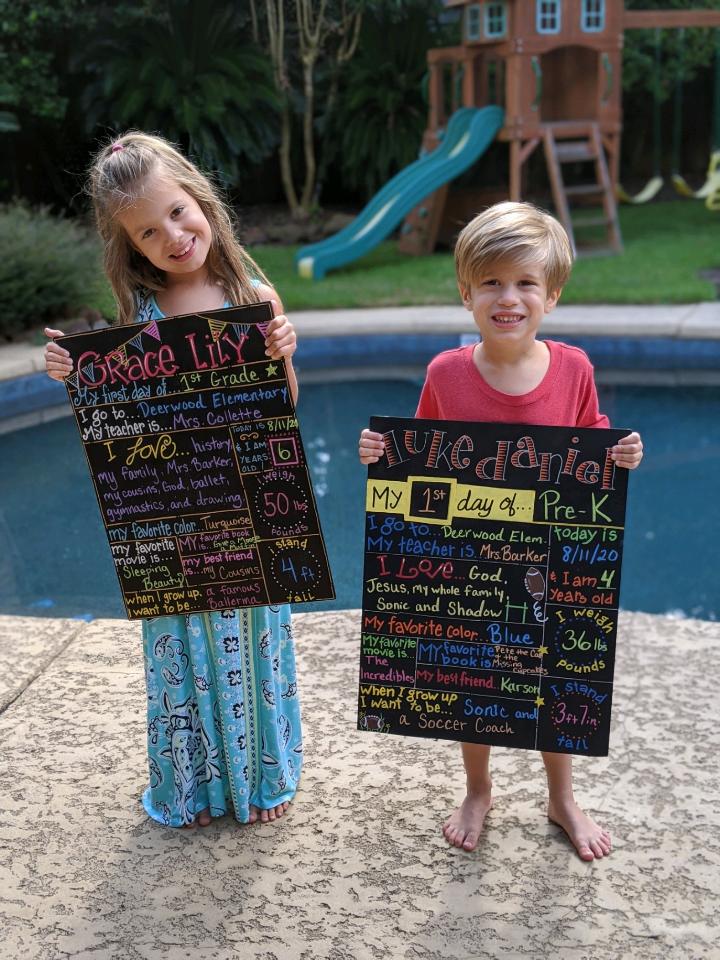 Grace Lily
My first day of 1st Grade
I go to... Deerwood Elementary
My teacher is... Mrs. Collette
I Love... history,
my family, Mrs. Barker,
my cousins, God, ballet,
gymnastics, and drawing.
TODAY IS 8/11/20
& I AM 6
YEARS OLD
I weigh
50 lbs
Pounds
my favorite color... Turquoise
my favorite movie is...
Sleeping Beauty
MY favorite book is...
my best friend is... my Cousins
I stand
4 ft
tall
when I grow up I want to be... a famous Ballerina
luke daniel
My 1st day of... Pre-K
I go to... Deerwood Elem.
My teacher is Mrs. Barker
today is
8/11/20
& I am 4
Years old
I Love... God,
Jesus, my whole family,
Sonic and Shadow
My favorite color... Blue
I weigh
36 lbs
Pounds
My favorite movie is...
The Incredibles
My favorite book is Pete the Cat & the Missing Cupcakes
My best friend... Karson
when I grow up
I want to be... Sonic and
a Soccer Coach
I stand
3ft 7in
tall